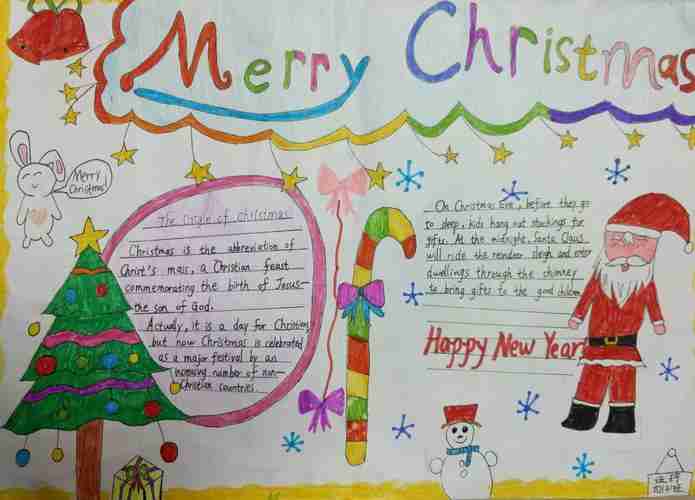 Merry Christmas
Merry
Christmas!
The Origin of Christmas
Christmas is the abbreviation of
Christ's mass, a Christian feast
commemorating the birth of Jesus—
the son of God.
Actually, it is a day for Christians
but now Christmas is celebrated
as a major festival by an
incresing number of non—
Christian countries.
On Christmas Eve, before they go
to sleep, kids hang out stockings for
gifts. At the midnight, Santa Claus
will ride the reindeer sleigh and enter
dwellings through the chimney
to bring gifts to the good children
Happy New Year!